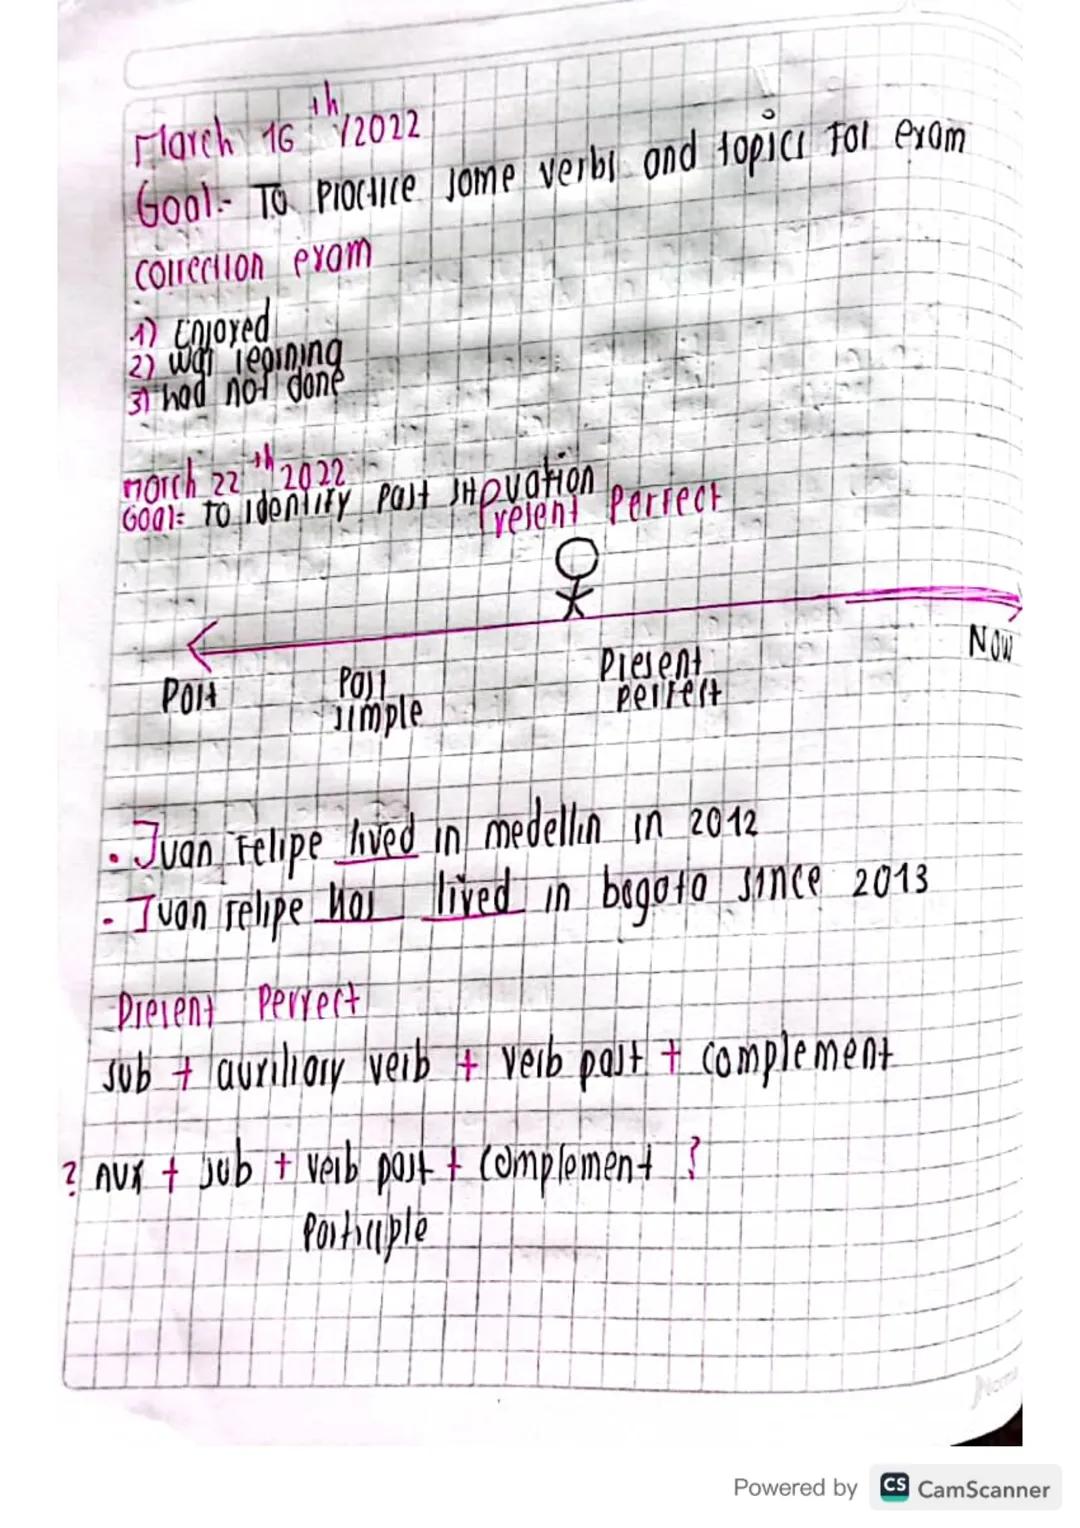 March 16th/2022
Goal:- To Practice some verbs and topics for exam
correction exam
1) Enjoyed
2) was learning
3) had not done
march 22th 2022
Goal: to identify past situation
Present Perfect
Now
Past
Past simple
Present perfect
. Juan Felipe lived in medellin in 2012
- Juan Felipe has lived in bogota since 2013
Present Perfect
sub + auxiliary verb + verb past + complement
? Aux + sub + verb past + complement ?
Participle
Norma
Powered by CS CamScanner